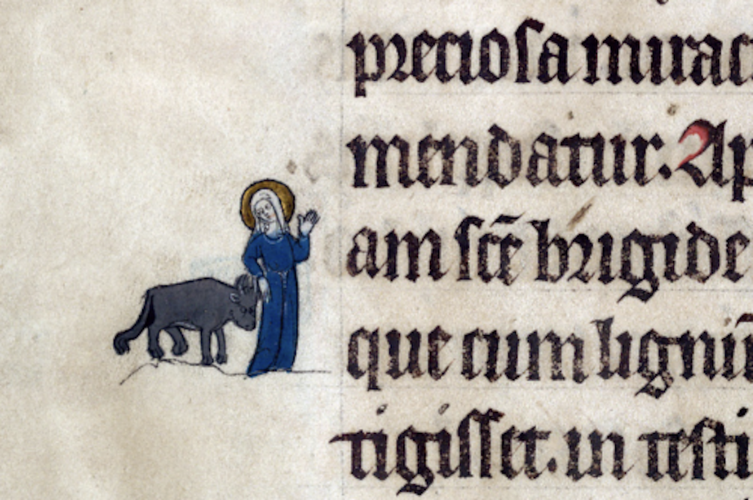 preciosa mirac
mendatur. Ap
am sc̄e brigide
que cum lignū
tigisset. in testi